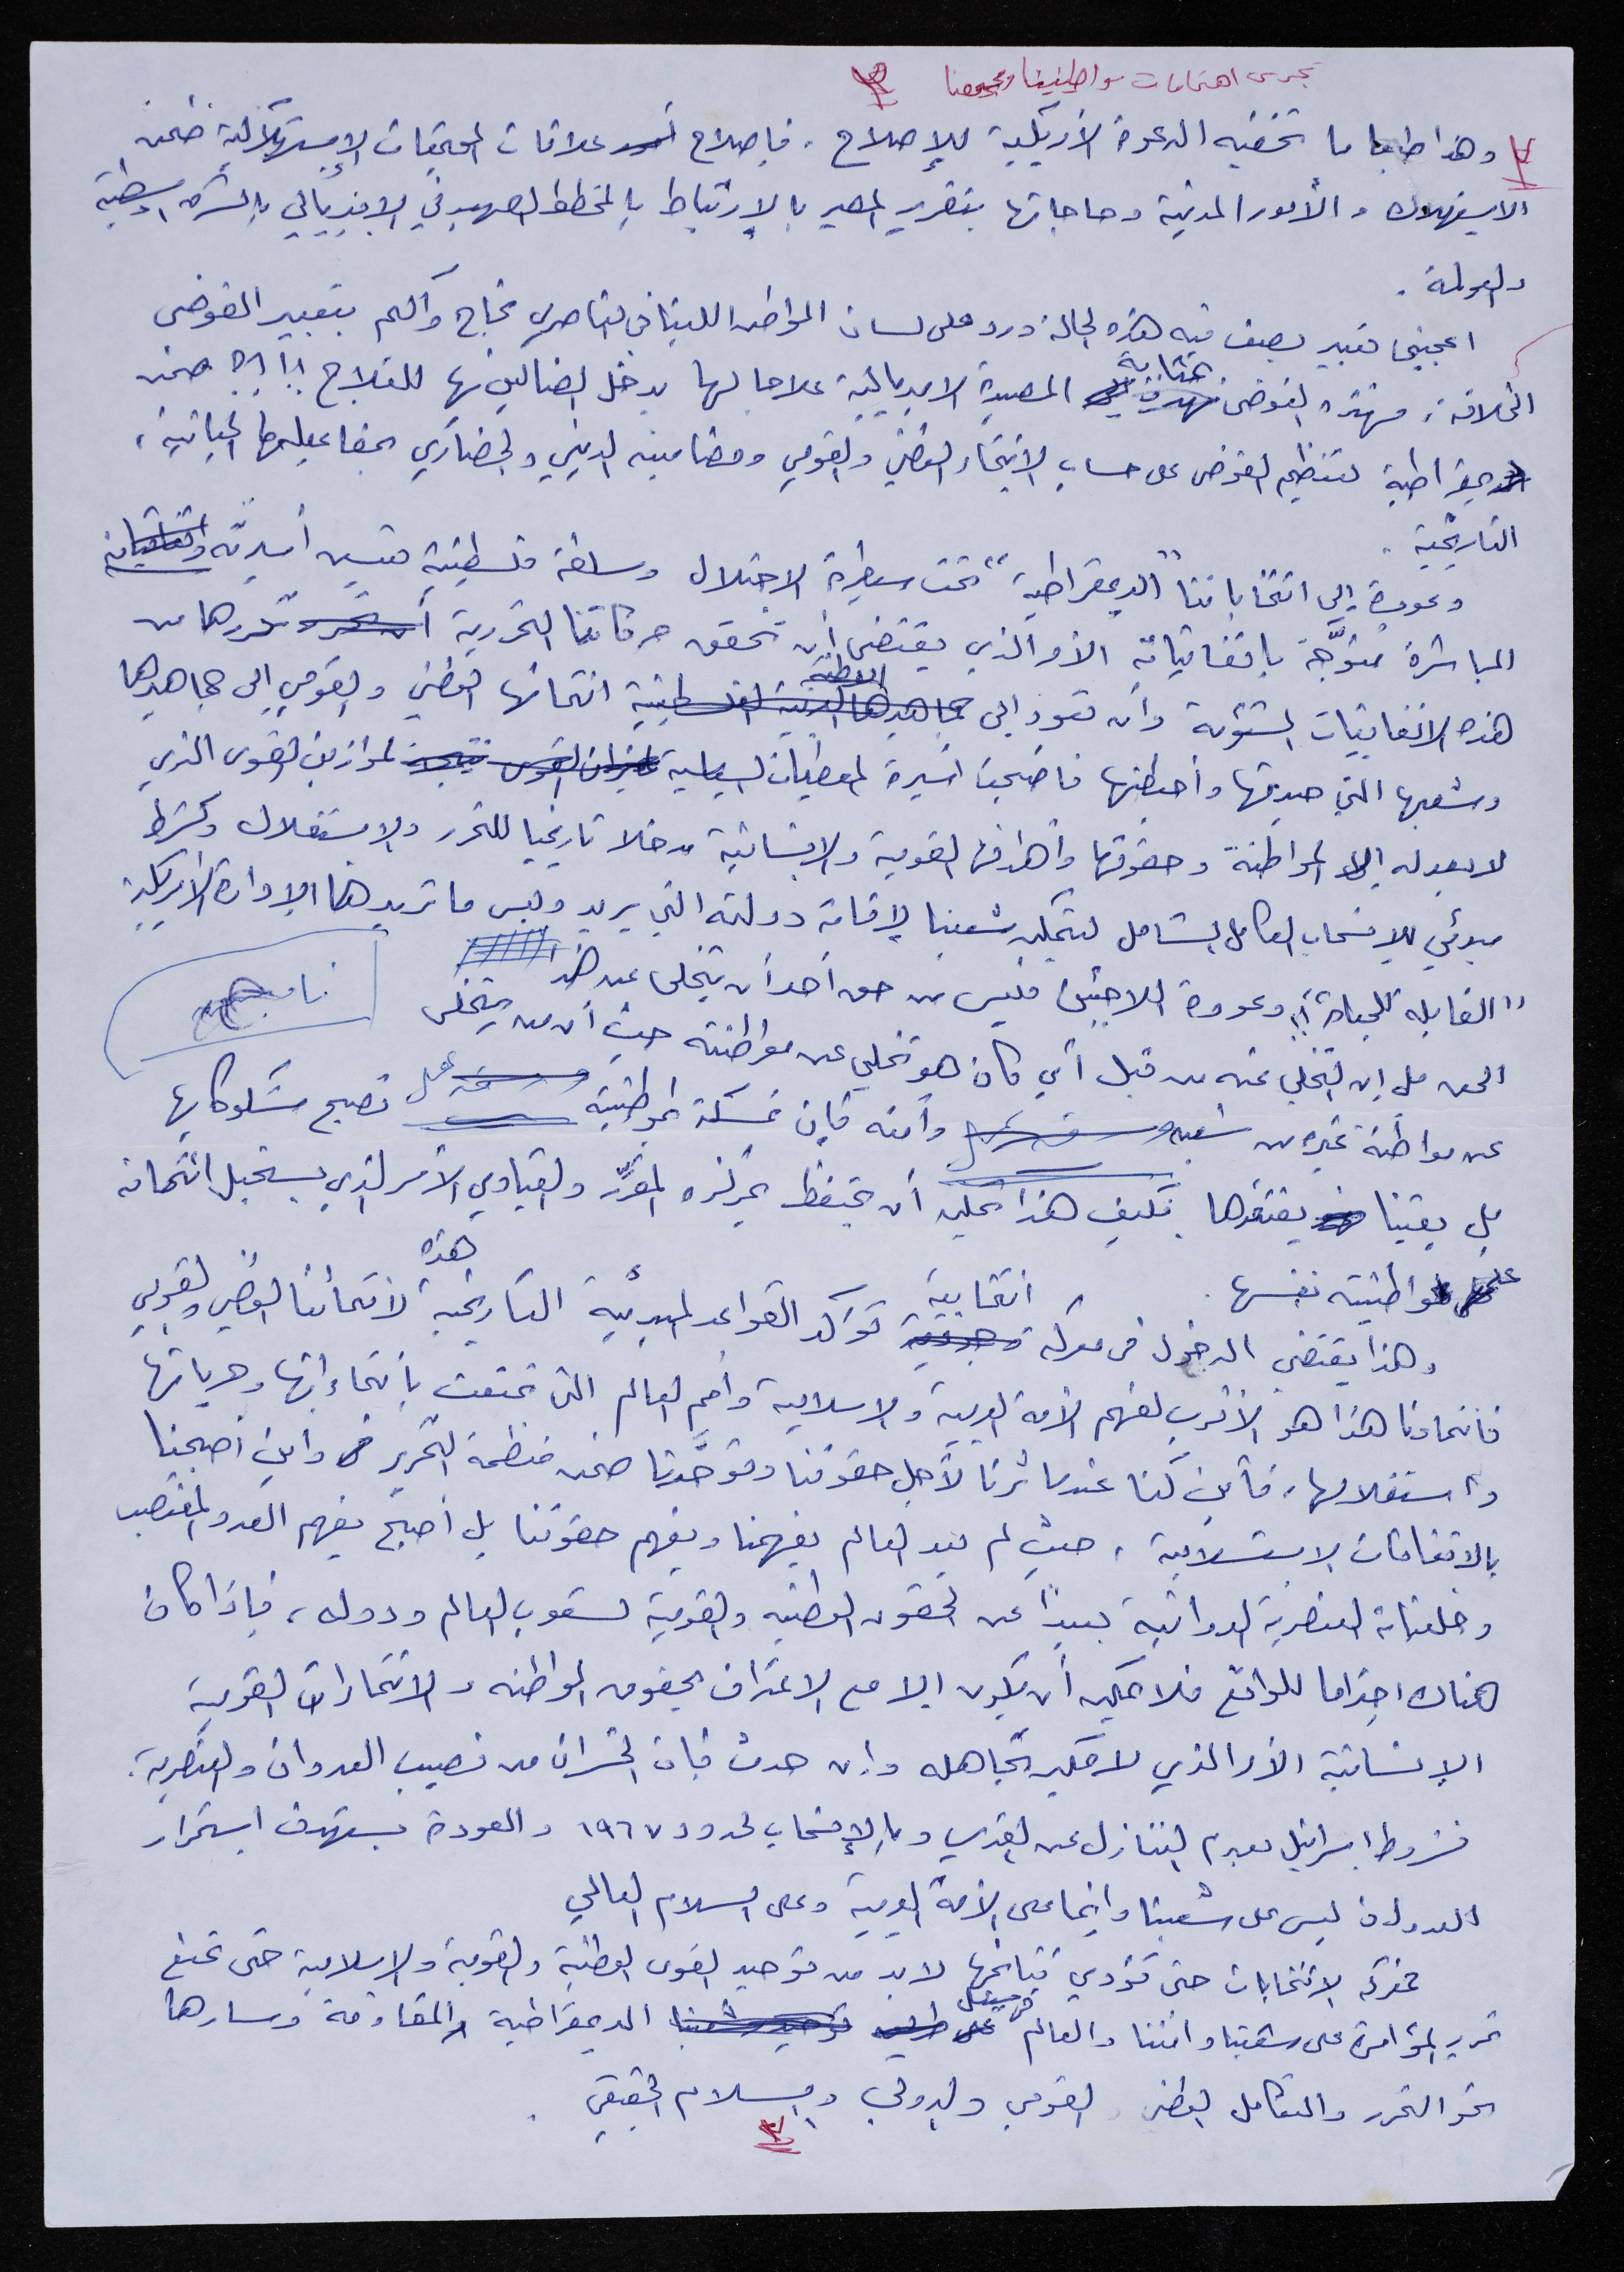 تجري اهتمامات مواطنينا ومجتمعنا
وهذا طبعا ما تخفيه الدعوة الأمريكية للإصلاح، فإصلاح علاقات المجتمعات الإستهلاكية ضمن
الاستهلاك والأمور المدنية وحاجاتها بتقرير المصير بالإرتباط بالمخطط الصهيوني الامبريالي بالشرق اوسطية
والعولمة .
اعجبني تعبير يصف فيه هذه الحالة ورد على لسان المواطن اللبناني الناصري نجاح واكيم بتعبير الفوضى
الخلاقة، فهذه الفوضى بمثابة المصيدة الامبريالية علاجا لها يدخل الضالين بها للعلاج !! ضمن
ديمقراطية لتنظيم الفوضى على حساب الانتماء الوطني والقومي ومضامينه الديني والحضاري بمفاعيلها الحياتية،
التاريخية .
وعودة إلى انتخاباتنا "الديمقراطية" تحت سيطرة الاحتلال وسلطة فلسطينية
المباشرة متوجة باتفاقياته الأمر الذي يقتضي أن تحقق حركاتنا التحررية تحررها من
هذه الاتفاقيات المشؤمة وأن تعود إلى انتمائها الوطني والقومي إلى جماهيرها
وشعبها التي حيدتها وأحبطتها فأضحينا اسيرة لمعطيات السياسية لموازين القوى الذي
لا يعيدها إلا المواطنة وحقوقها وأهدافها القومية والإنسانية مدخلا تاريخيا للتحرر والاستقلال وكشرط
مبدئي للإنسحاب الكامل الشامل لتمكين شعبنا لإقامة دولته التي يريد وليس ما تريدها الإدارة الأمريكية
"القابلة للحياة"!! وعودة اللاجئين فليس من حق أحد أن يتخلى عن هذا
الحق بل إن التخلي عنه من قبل أي كان هو تخلي عن مواطنته حيث أن من يتخلى
عن مواطنة غيره من شعبه وأمته فإن تمسكه بمواطنيته تصبح مشكوكا بها
بل يقينا يفتقدها، فكيف هذا يمكن أن يحتفظ بمركزه المقرر والقيادي الأمر الذي يستحيل ائتمانه
على مواطنيته نفسها .
وهذا يقتضي الدخول في معركة انتخابية تؤكد القواعد المبدئية التاريخية هذه لانتمائنا الوطني والقومي
فانتماؤنا هذا هو الأقرب لفهم الأمة العربية والاسلامية وأمم العالم التي تمتعت بانتماءاتها وحرياتها
واستقلالها، فأين كنا عندما ثرنا لأجل حقوقنا وتوحدنا ضمن منظمة التحرير وأين أصبحنا
بالاتفاقات الاستسلامية، حيث لم يعد العالم يفهمنا ويفهم حقوقنا بل أصبح يفهم العدو المغتصب
وخلفياته العنصرية العدوانية بعيداً عن الحقوق الوطنية والقومية لشعوب العالم ودوله، فإذا كان
هناك احتراما للواقع فلا يمكن أن يكون إلا مع الاعتراف بحقوق المواطنه والانتماءات القومية
الإنسانية الأمر الذي لا يمكن تجاهله وإن حدث فإن الخسران من نصيب العدوان والعنصرية.
فشروط اسرائيل بعدم التنازل عن القدس وبالإنسحاب لحدود ١٩٦٧ والعودة يستهدف استمرار
العدوان ليس على شعبنا وإنما على الأمة العربية وعلى السلام العالمي
فمعركة الانتخابات حتى تؤدي نتائجها لا بد من توحيد القوى الوطنية والقومية والإسلامية حتى تمنع
تمرير المؤامرة على شعبنا وامتنا والعالم الديمقراطية والمقاومة ومسارها
نحو التحرر والتكامل الوطني القومي والدولي والسلام الحقيقي .